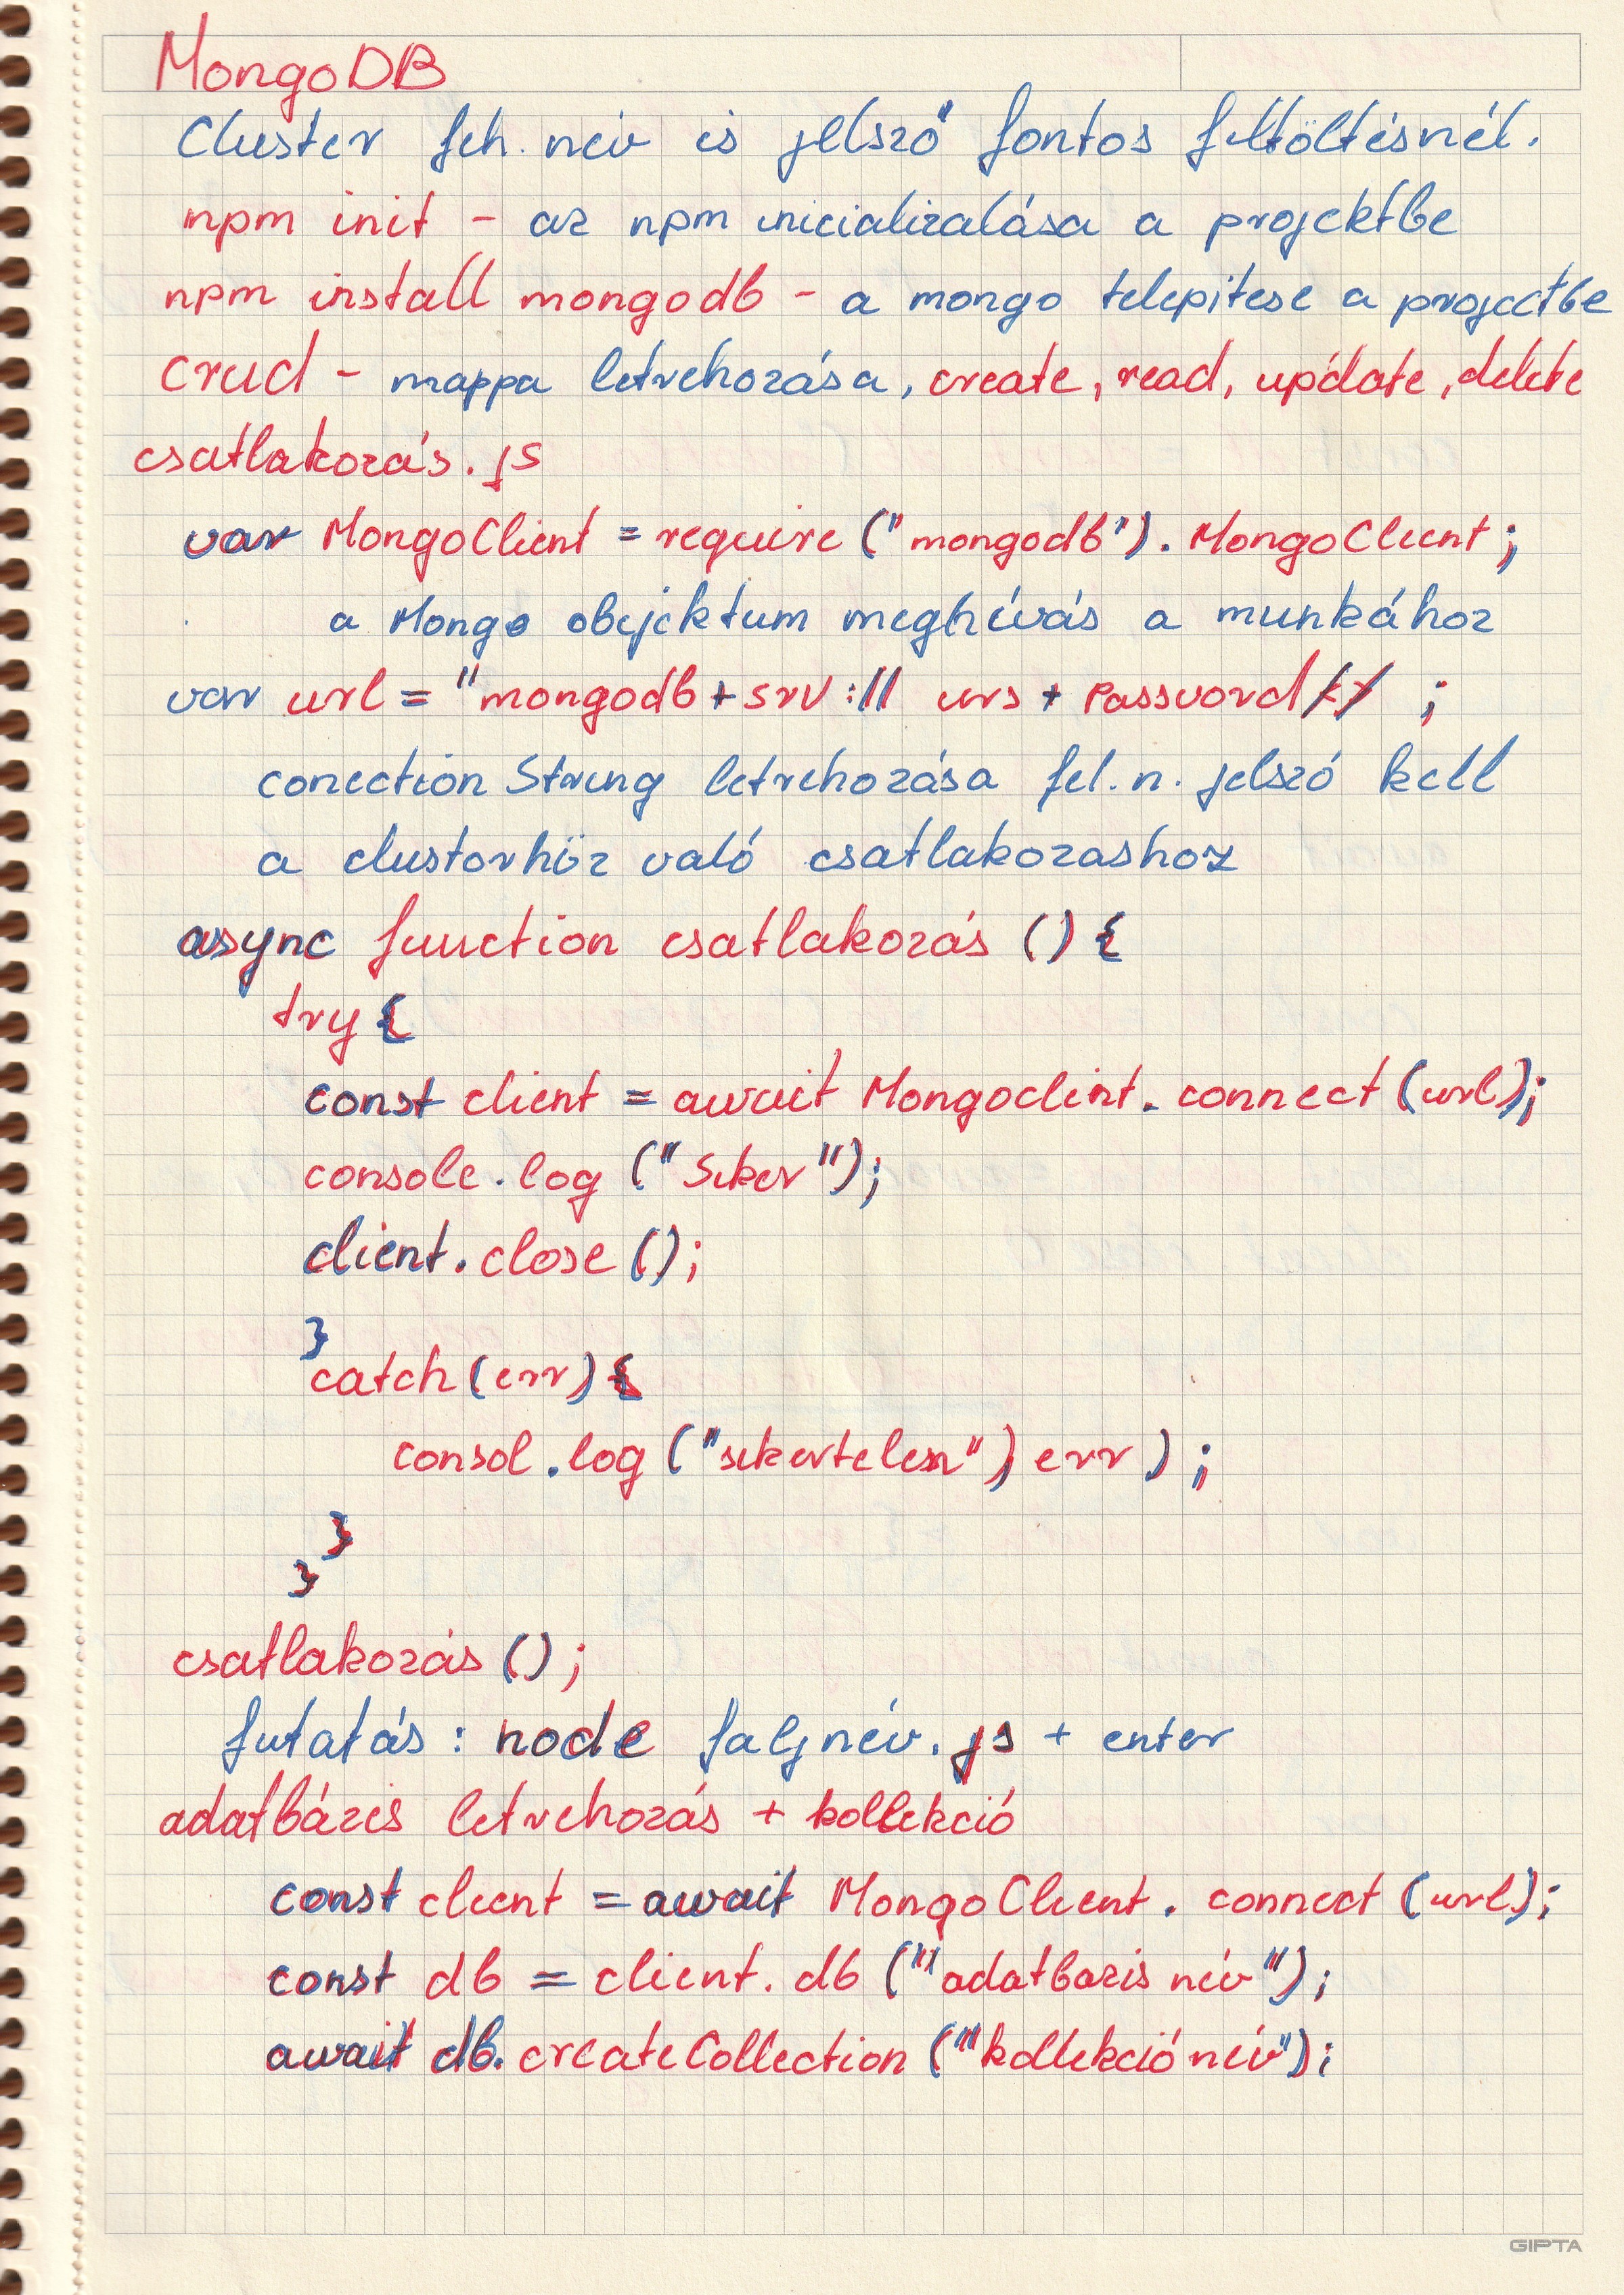 MongoDB
Cluster feh. név és jelsző fontos feltöltésnél.
npm init - az npm inicializalása a projektbe
npm install mongodb - a mongo telepitese a projectbe
crud - mappa letrehozása, create, read, update, delete
csatlakozás.js
var MongoClient = require ("mongodb"). MongoClient;
a Mongo obejektum meghívás a munkához
var url = "mongodb+srv:// urs + Passvord ;
conection String letrehozása fel. n. jelszó kell
a clustorhöz való csatlakozashoz
async function csatlakozás () {
try {
const client = await Mongoclint. connect (url);
console.log ("Siker");
client.close ();
}
catch (err) {
consol.log ("sikertelen") err ) ;
}
}
csatlakozás ();
futatás : node faljnév.js + enter
adatbázis letrehozás + kollekció
const client = await MongoClient. connect (url);
const db = client. db ("adatbazis név");
await db. createCollection ("kollekció név");
GIPTA